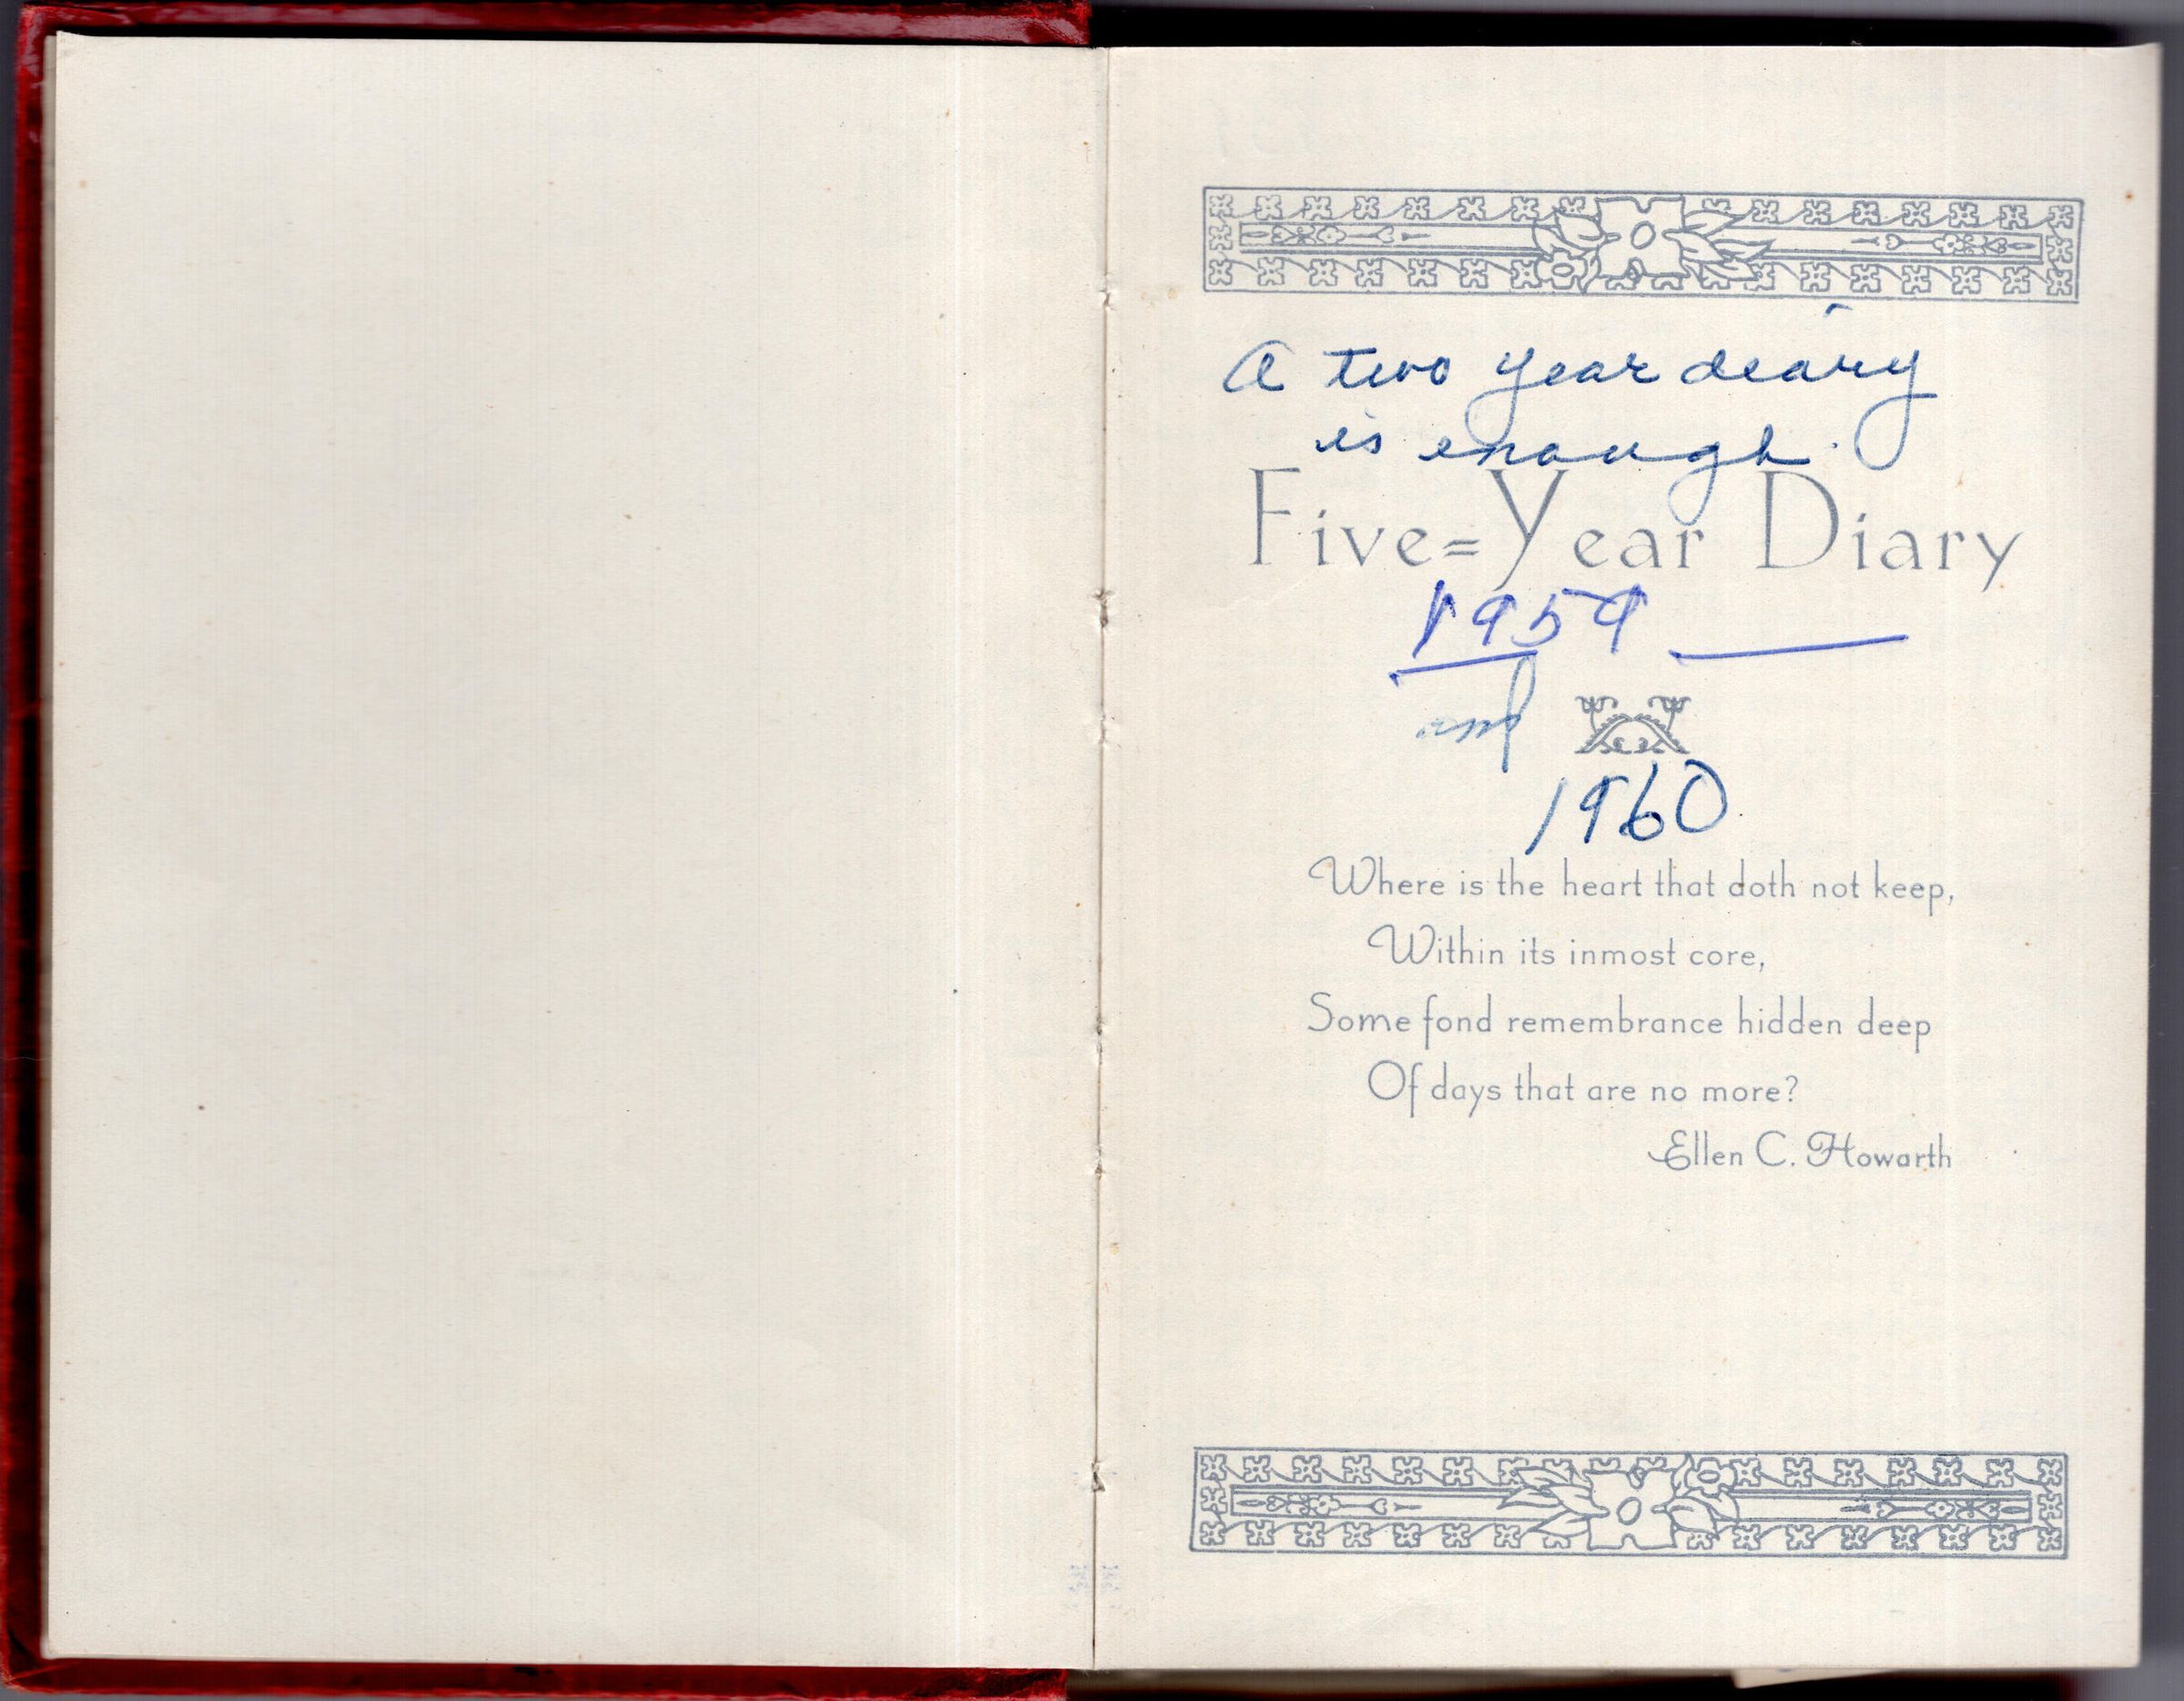 A two year deary
is enough.
Five=Year Diary
1959
and
1960
Where is the heart that doth not keep,
Within its inmost core,
Some fond remembrance hidden deep
Of days that are no more?
Ellen C. Howarth